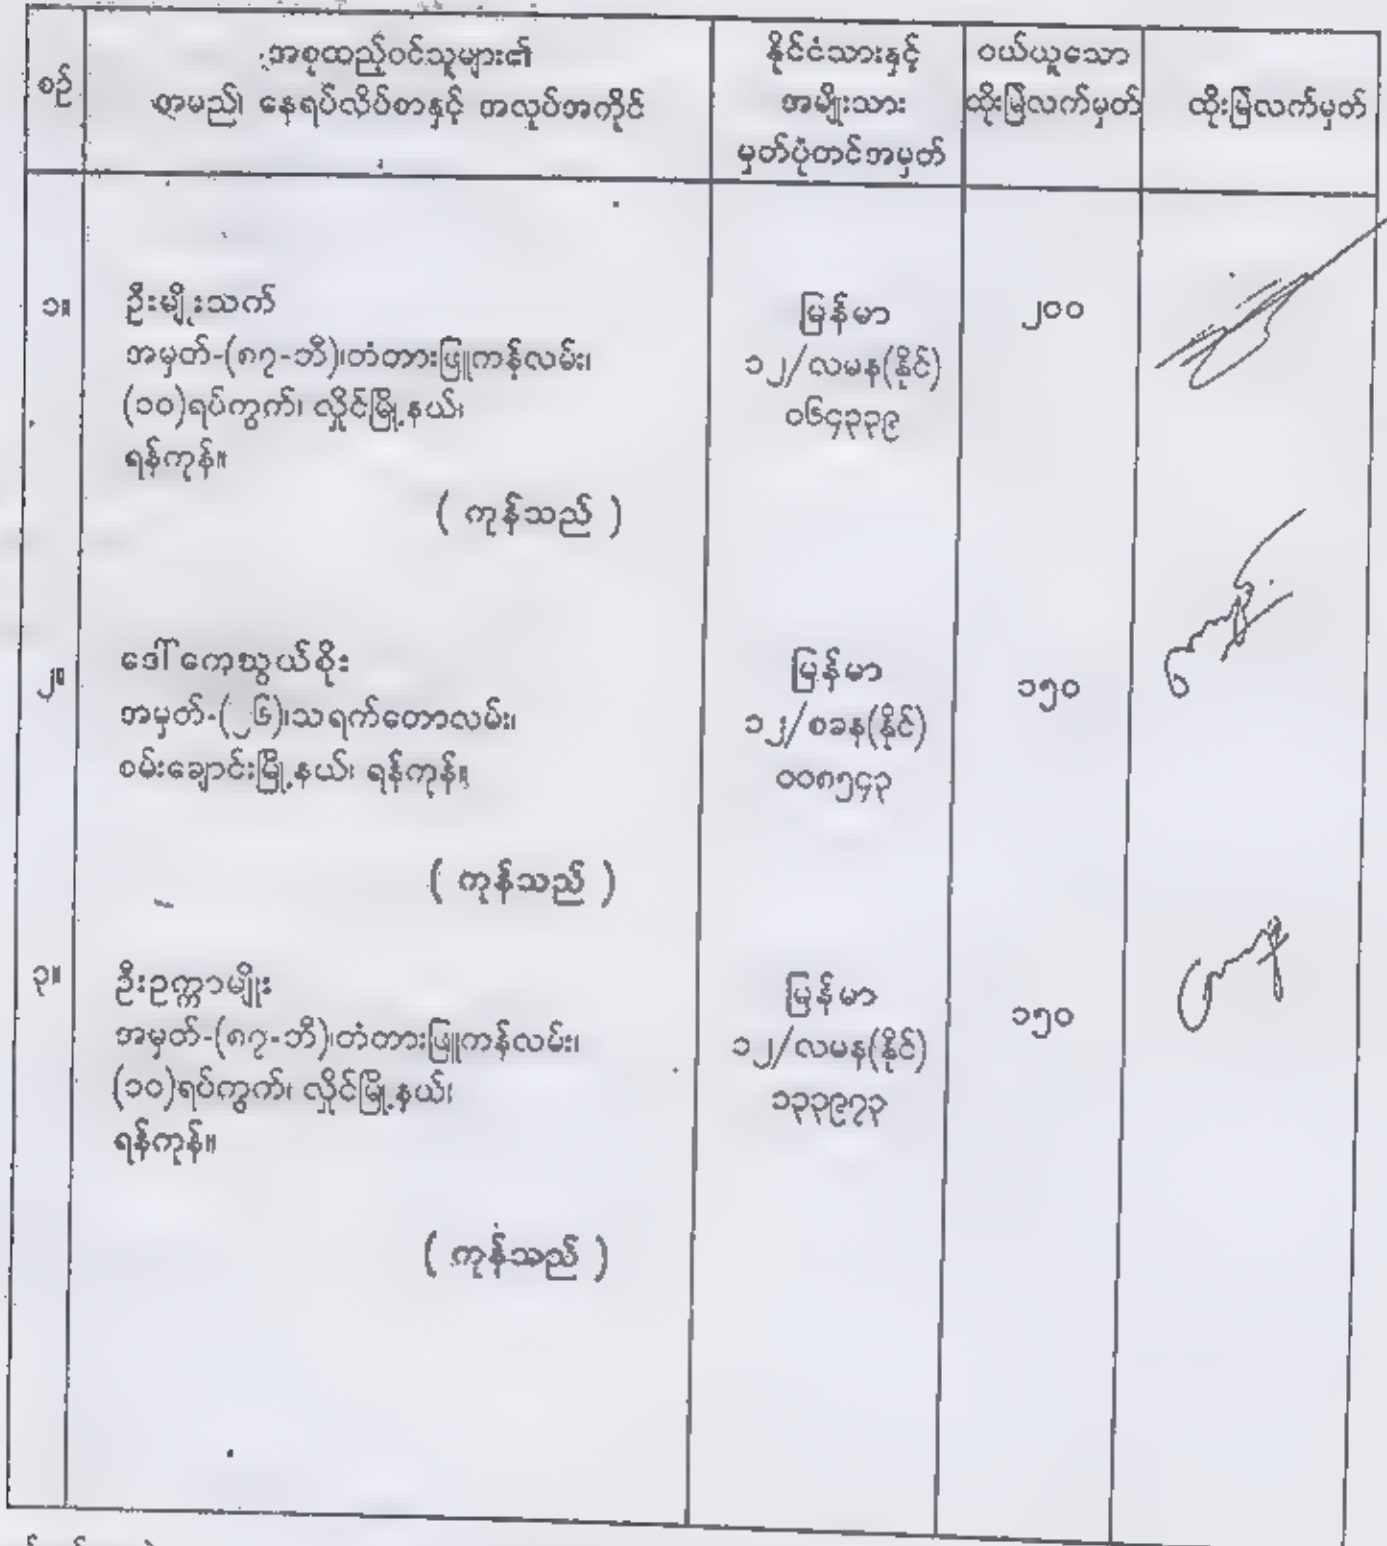 စဉ်
အစုထည့်ဝင်သူများ၏
အမည်၊ နေရပ်လိပ်စာနှင့် အလုပ်အကိုင်
နိုင်ငံသားနှင့်
အမျိုးသား
မှတ်ပုံတင်အမှတ်
ဝယ်ယူသော
ထိုးမြဲလက်မှတ်
ထိုးမြဲလက်မှတ်
၁။
ဦးမျိုးသက်
အမှတ်-(၈၇-ဘီ)၊တံတားဖြူကန်လမ်း၊
(၁၀)ရပ်ကွက်၊ လှိုင်မြို့နယ်၊
ရန်ကုန်။
( ကုန်သည် )
မြန်မာ
၁၂/လမန(နိုင်)
၀၆၄၃၃၉
၂၀၀
၂။
ဒေါ်ကေသွယ်စိုး
အမှတ်-(၂၆)၊သရက်တောလမ်း၊
စမ်းချောင်းမြို့နယ်၊ ရန်ကုန်။
( ကုန်သည် )
မြန်မာ
၁၂/စခန(နိုင်)
၀၀၈၅၄၃
၁၅၀
၃။
ဦးဥက္ကာမျိုး
အမှတ်-(၈၇-ဘီ)၊တံတားဖြူကန်လမ်း၊
(၁၀)ရပ်ကွက်၊ လှိုင်မြို့နယ်၊
ရန်ကုန်။
( ကုန်သည် )
မြန်မာ
၁၂/လမန(နိုင်)
၁၃၃၉၇၃
၁၅၀